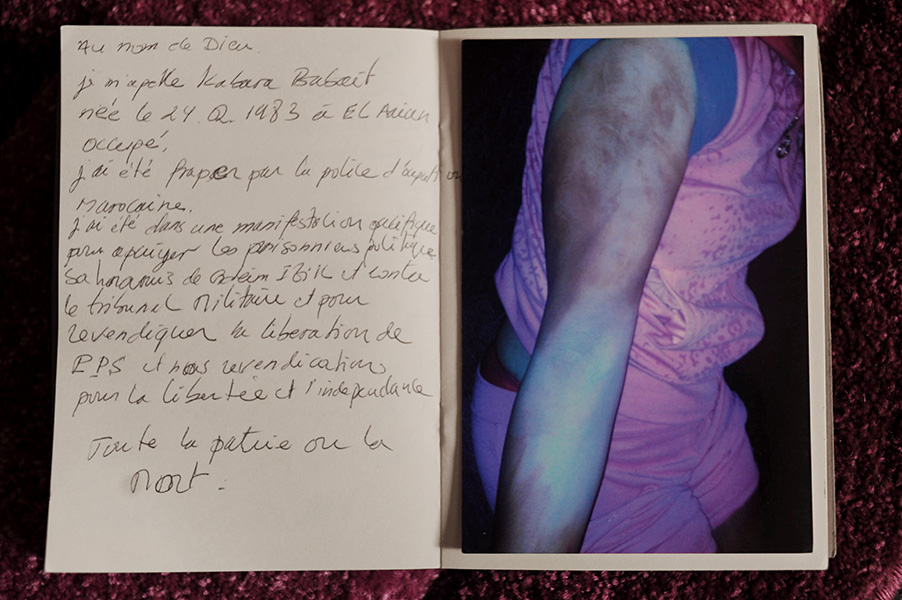 Au nom de Dieu.
je m'apelle Kabara Babait
née le 24. 02. 1983 à EL Aaiun
occupé,
j'ai été fraper par la police d'
marocaine.
j'ai été dans une manifestation pacifique
pour apuiyer les prisonniers politique
sahraouis de Gdeim IZIK et contre
le tribunal Militaire et pour
revendiquer la liberation de
EPS et nos revendications
pour la libertée et l'independance
Toute la patrie ou la
Mort.